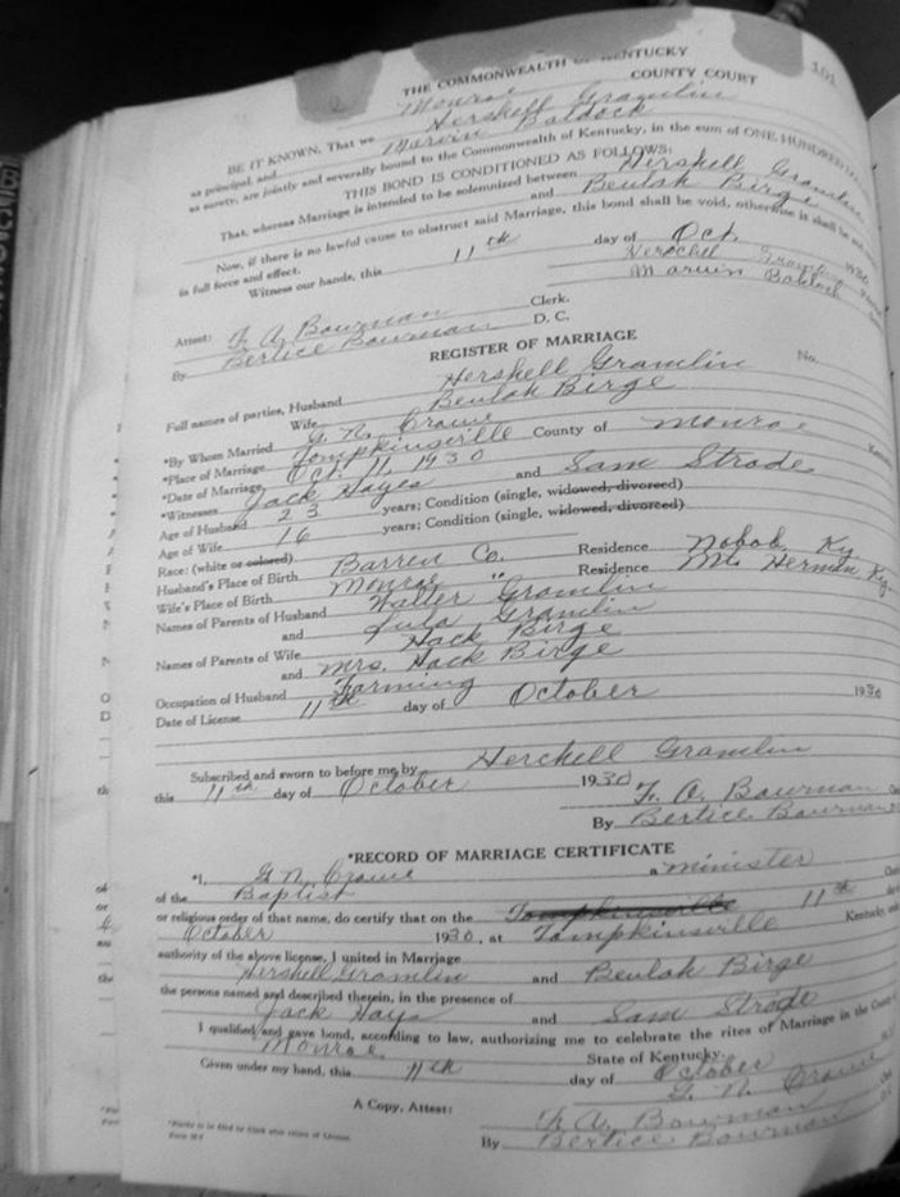 101
THE COMMONWEALTH OF KENTUCKY
Monroe COUNTY COURT
BE IT KNOWN, That we Hershell Gramlin
as principal, and Marvin Baldock
as surety, are jointly and severally bound to the Commonwealth of Kentucky, in the sum of ONE HUNDRED
THIS BOND IS CONDITIONED AS FOLLOWS:
That, whereas Marriage is intended to be solemnized between Hershell Gramlin
and Beulah Birge
Now, if there is no lawful cause to obstruct said Marriage, this bond shall be void, otherwise it shall be
in full force and effect.
Witness our hands, this 11th day of Oct. 1930
Herschel Gramlin
Marvin Baldock
Attest: F. A. Bowman Clerk.
By Bertice Bowman D. C.
REGISTER OF MARRIAGE
No.
Full names of parties, Husband Hershell Gramlin
Wife Beulah Birge
*By Whom Married G. N. Crowe
*Place of Marriage Tompkinsville County of Monroe
*Date of Marriage Oct. 11, 1930
*Witnesses Jack Hayes and Sam Strode
Age of Husband 23 years; Condition (single, widowed, divorced)
Age of Wife 16 years; Condition (single, widowed, divorced)
Race: (white or colored)
Husband's Place of Birth Barren Co. Residence Nobob, Ky
Wife's Place of Birth Monroe " Residence Mt. Herman Ky.
Names of Parents of Husband Walter Gramlin
and Lula Gramlin
Names of Parents of Wife Hack Birge
and Mrs. Hack Birge
Occupation of Husband Farming
Date of License 11th day of October 1930
Subscribed and sworn to before me by Herchell Gramlin
this 11th day of October 1930
F. A. Bowman
By Bertice Bowman
*RECORD OF MARRIAGE CERTIFICATE
*I, G. N. Crowe a minister
of the Baptist
or religious order of that name, do certify that on the Tompkinsville 11th
October 1930, at Tompkinsville Kentucky, under
authority of the above license, I united in Marriage
Hershell Gramlin and Beulah Birge
the persons named and described therein, in the presence of
Jack Hays and Sam Strode
I qualified and gave bond, according to law, authorizing me to celebrate the rites of Marriage in the County
Monroe State of Kentucky.
Given under my hand, this 11th day of October
G. N. Crowe
A Copy, Attest: F. A. Bowman
By Bertice Bowman